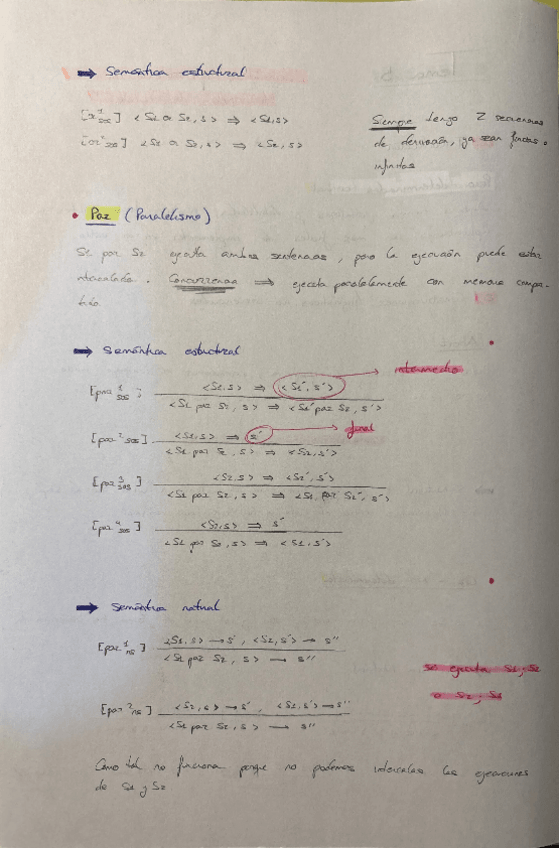 → Semántica estructural
[or¹sos] <S1 or S2, s> ⇒ <S1, s>
[or²sos] <S1 or S2, s> ⇒ <S2, s>
Siempre tengo 2 secuencias
de derivación, ya sean finitas o
infinitas
• Par (Paralelismo)
S1 par S2 ejecuta ambas sentencias, pero la ejecución puede estar
intercalada. Concurrencia ⇒ ejecuta paralelamente con memoria compar-
tida.
→ Semántica estructural
[par¹sos] <S1, s> ⇒ <S1', s'> → intermedio
<S1 par S2, s> ⇒ <S1' par S2, s'>
[par²sos] <S1, s> ⇒ s' → final
<S1 par S2, s> ⇒ <S2, s'>
[par³sos] <S2, s> ⇒ <S2', s'>
<S1 par S2, s> ⇒ <S1 par S2', s'>
[par⁴sos] <S2, s> ⇒ s'
<S1 par S2, s> ⇒ <S1, s'>
→ Semántica natural
[par¹ns] <S1, s> → s', <S2, s'> → s''
<S1 par S2, s> → s''
se ejecuta S1; S2
o S2; S1
[par²ns] <S2, s> → s', <S1, s'> → s''
<S1 par S2, s> → s''
Como tal no funciona porque no podemos intercalar las ejecuciones
de S1 y S2